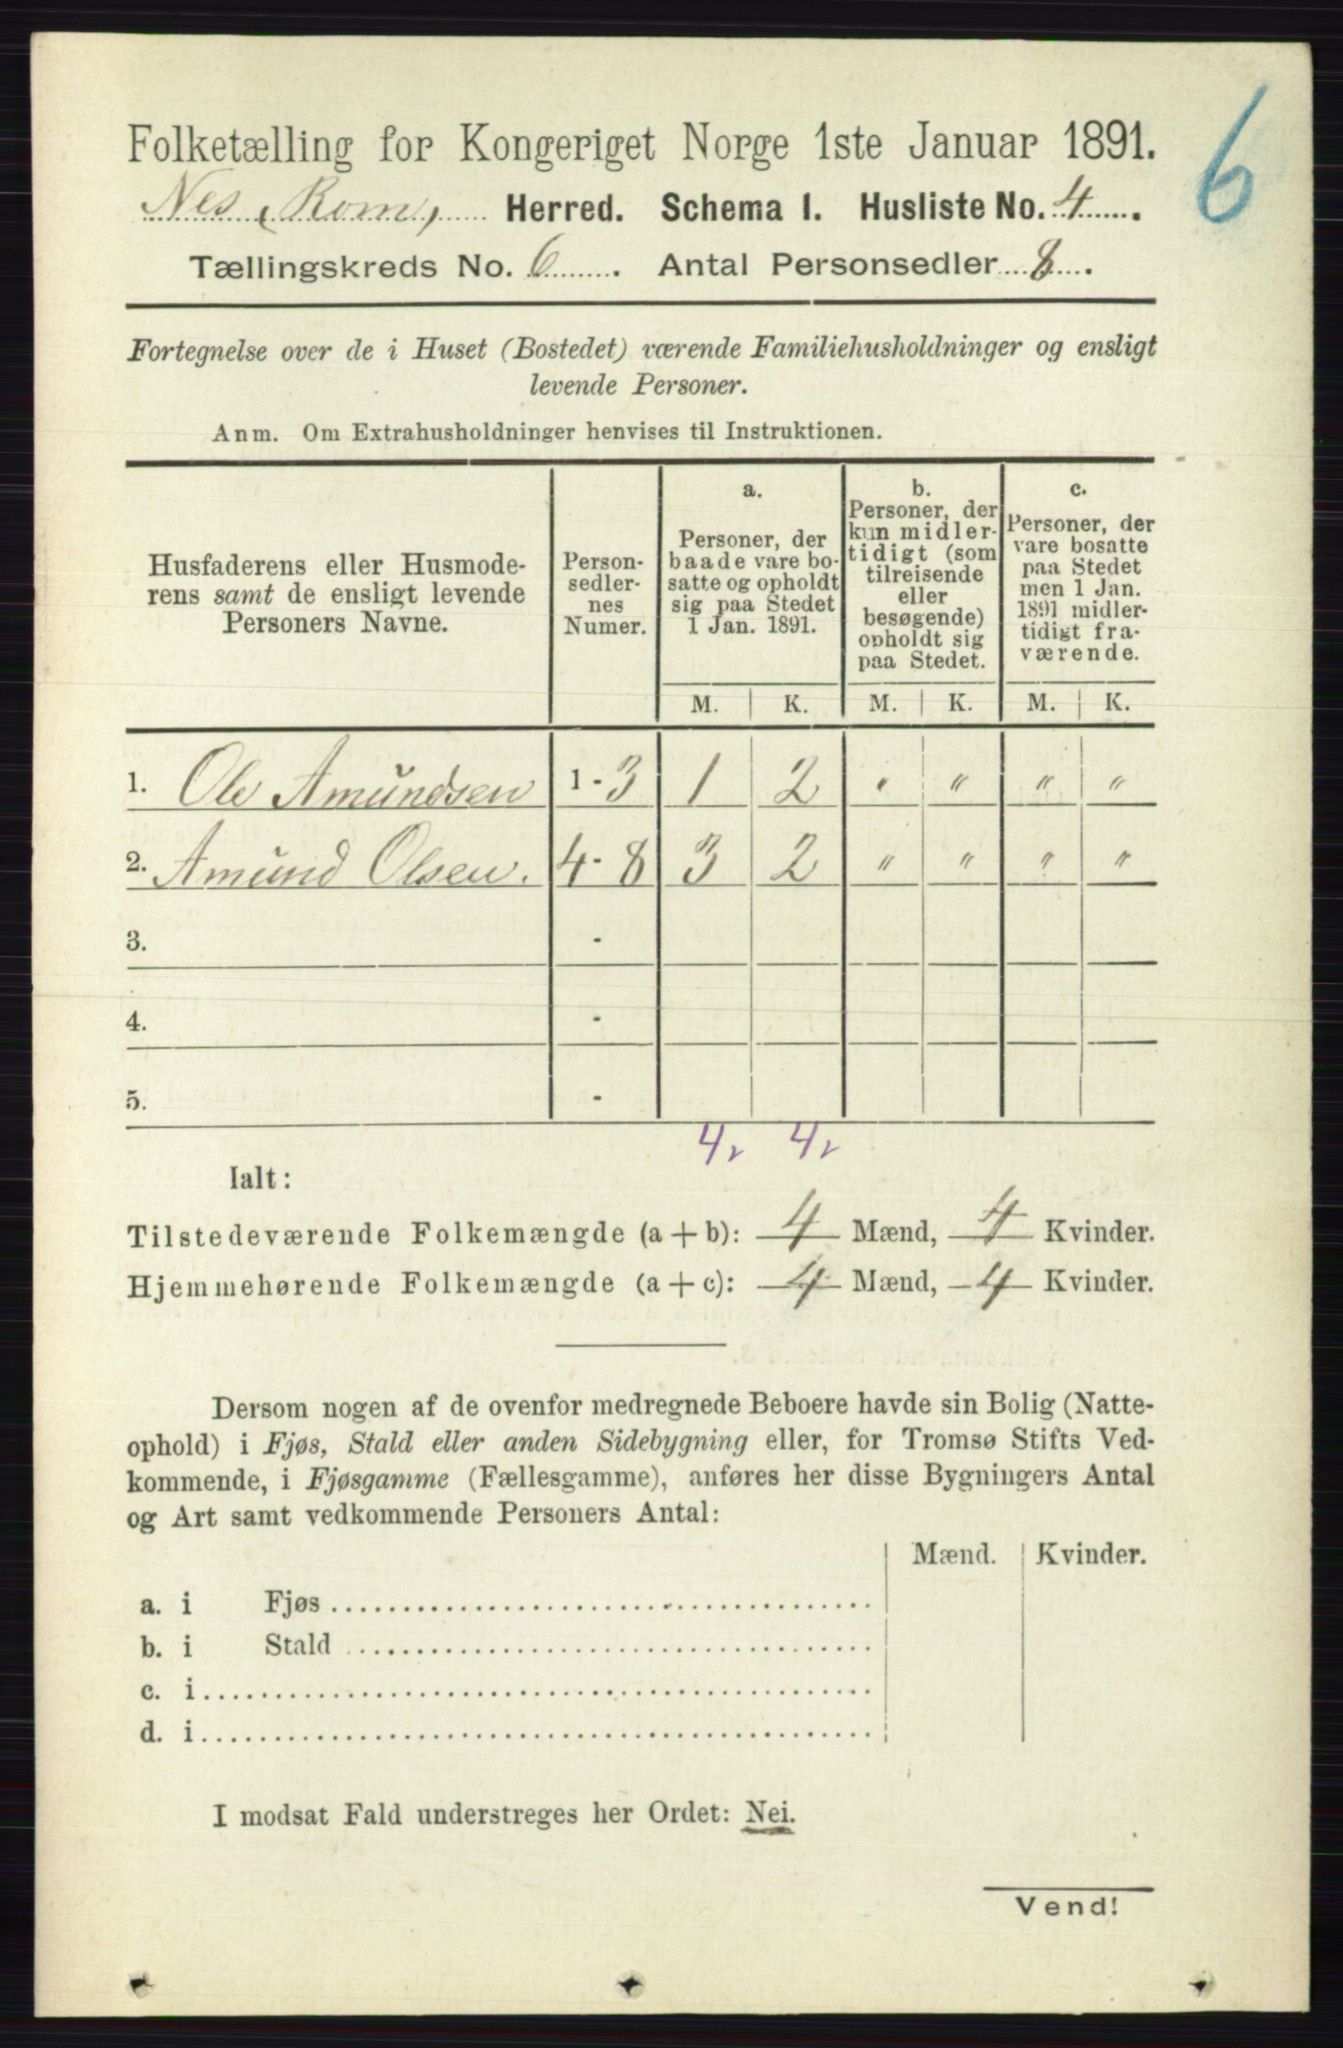 6
Folketælling for Kongeriget Norge 1ste Januar 1891.
Nes (Rom) Herred. Schema 1. Husliste No. 4.
Tællingskreds No. 6. Antal Personsedler 8.
Fortegnelse over de i Huset (Bostedet) værende Familiehusholdninger og ensligt
levende Personer.
Anm. Om Extrahusholdninger henvises til Instruktionen.
Husfaderens eller Husmode-
rens samt de ensligt levende
Personers Navne.
Person-
sedler-
nes
Numer.
a.
Personer, der
baade vare bo-
satte og opholdt
sig paa Stedet
1 Jan. 1891.
b.
Personer, der
kun midler-
tidigt (som
tilreisende
eller
besøgende)
opholdt sig
paa Stedet.
c.
Personer, der
vare bosatte
paa Stedet
men 1 Jan.
1891 midler-
tidigt fra-
værende.
M. K. M. K. M. K.
1. Ole Amundsen 1-3 1 2 " " " "
2. Amund Olsen. 4-8 3 2 " " " "
3. -
4. -
5. -
4 4
Ialt:
Tilstedeværende Folkemængde (a + b): 4 Mænd, 4 Kvinder.
Hjemmehørende Folkemængde (a + c): 4 Mænd, 4 Kvinder.
Dersom nogen af de ovenfor medregnede Beboere havde sin Bolig (Natte-
ophold) i Fjøs, Stald eller anden Sidebygning eller, for Tromsø Stifts Ved-
kommende, i Fjøsgamme (Fællesgamme), anføres her disse Bygningers Antal
og Art samt vedkommende Personers Antal:
Mænd. Kvinder.
a. i Fjøs
b. i Stald
c. i
d. i
I modsat Fald understreges her Ordet: Nei.
Vend!